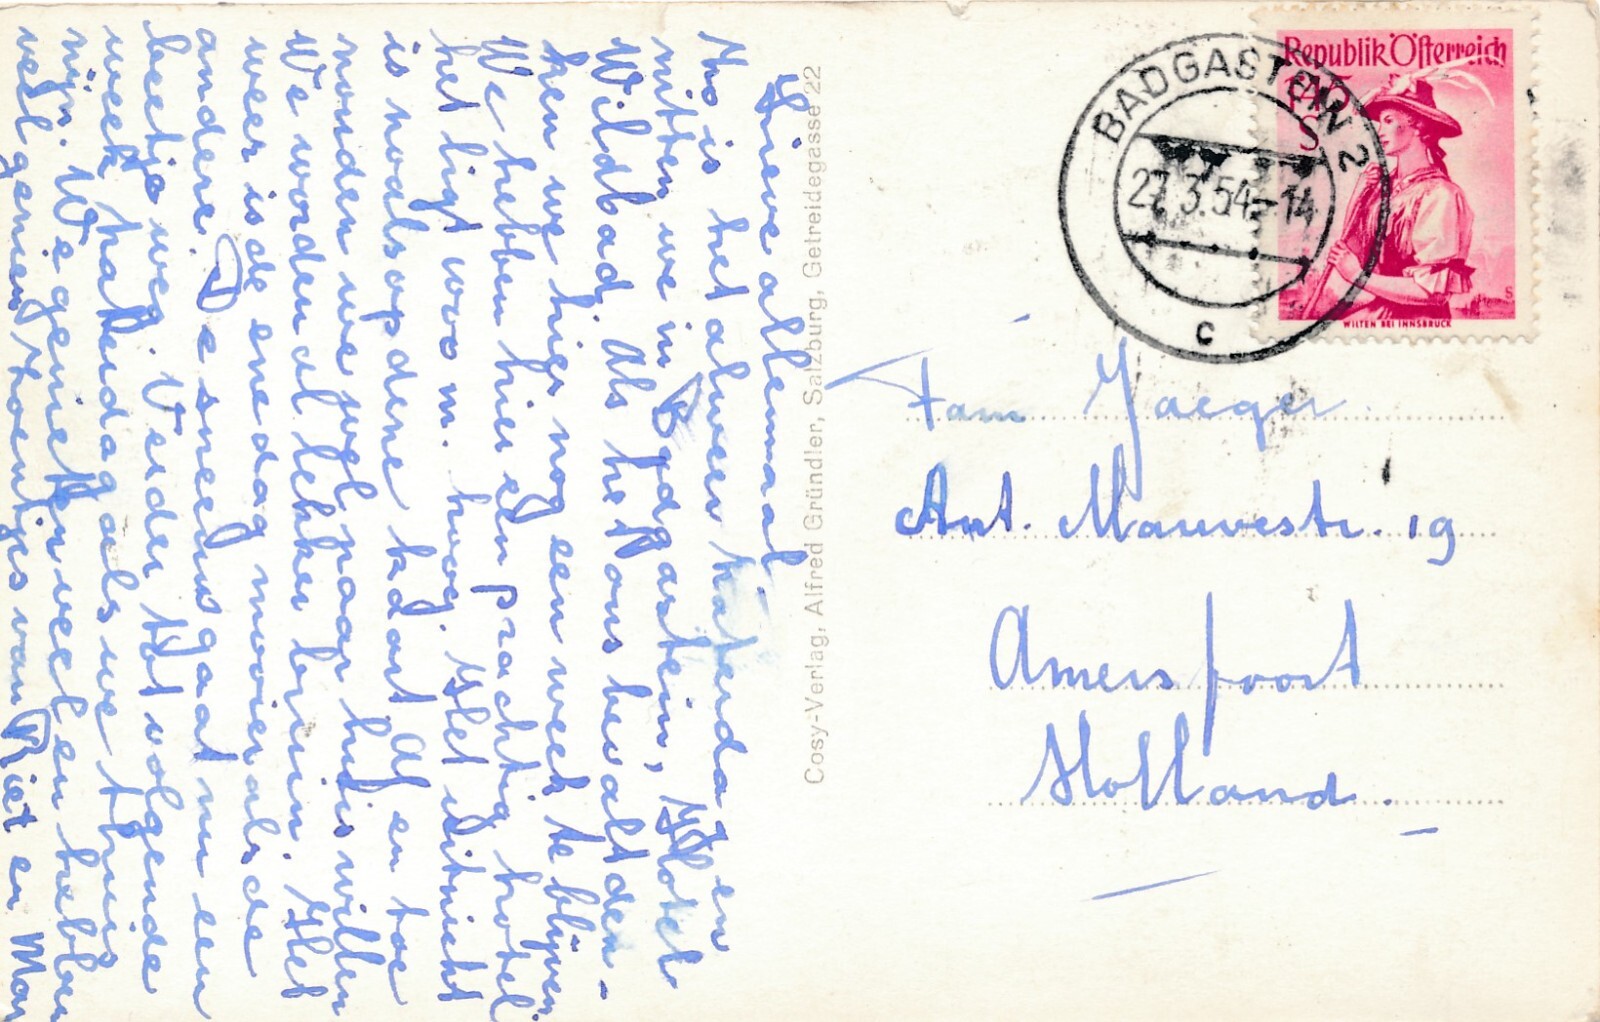 Lieve allemaal.
Nu is het alweer Zaterdag en
zitten we in Badgastein, Hotel
Wildbad. Als het ons bevalt den-
ken we hier nog een week te blijven.
We hebben hier een prachtig hotel
het ligt 1100 m. hoog. Het uitzicht
is zoals op deze kaart. Af en toe
we huis willen
We worden al lekker bruin. Het
weer is de ene dag mooier als de
andere. De sneeuw gaat nu een
beetje weg. Verder tot volgende
week Zaterdag als we thuis
zijn. We genieten veel en hebben
veel zoentjes van Riet en
Cosy-Verlag, Alfred Gründler, Salzburg, Getreidegasse 22
Republik Österreich
S
WILTEN BEI INNSBRUCK
BADGASTEIN 2
27.3.54-14
c
Fam Jaeger
Ant. Mauvestr. 19
Amersfoort
Holland.